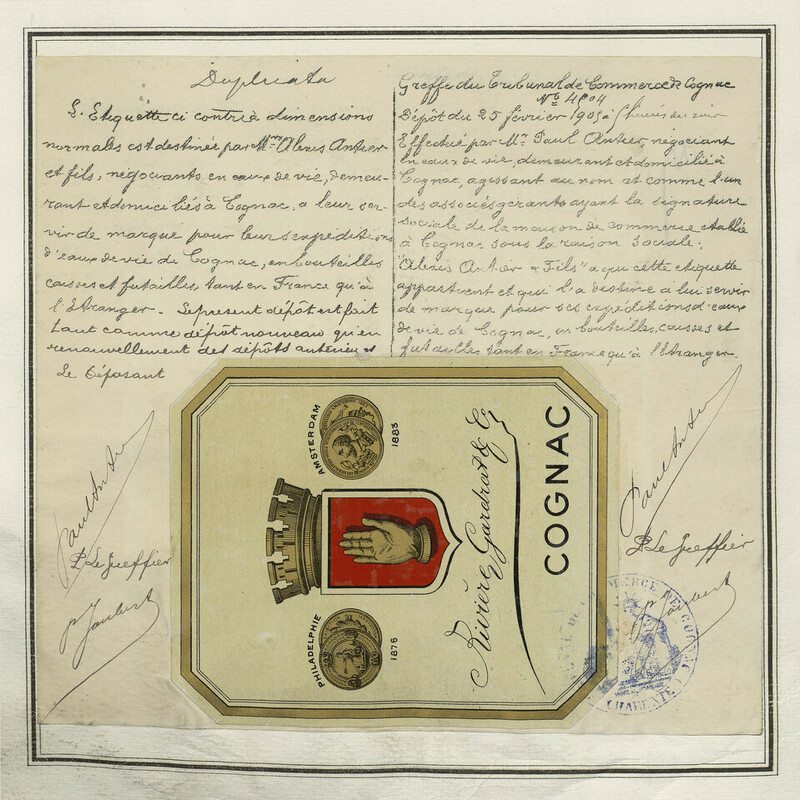 Duplicata
L'Etiquette ci contre à dimensions
normales est destinée par Mrs Alexis Antier
et fils, négociants en eaux de vie, demeu-
rant et domiciliés à Cognac, a leur ser-
vir de marque pour leurs expéditions
d'eaux de vie de Cognac, en bouteilles
caisses et futailles, tant en France qu'à
l'Etranger. Le présent dépôt est fait
tant comme dépôt nouveau qu'en
renouvellement des dépôts antérieurs
Le Déposant
Paul Antier
P. Le Greffier
P Jaubert
Greffe du Tribunal de Commerce de Cognac
No 4804
Dépôt du 25 février 1905 à heures du soir
Effectué par Mr Paul Antier, négociant
en eaux de vie, demeurant et domicilié à
Cognac, agissant au nom et comme l'un
des associés gérants ayant la signature
sociale de la maison de commerce établie
à Cognac sous la raison sociale:
"Alexis Antier & Fils" a qui cette etiquette
appartient et qui l'a destine à lui servir
de marque pour ses expéditions d'eaux
de vie de Cognac, en bouteilles, caisses et
futailles tant en France qu'à l'Etranger.
Paul Antier
P. Le Greffier
P Jaubert
AMSTERDAM
1883
PHILADELPHIE
1876
Rivière Gardrat & Co
COGNAC
COMMERCE DE COGNAC
CHARENTE